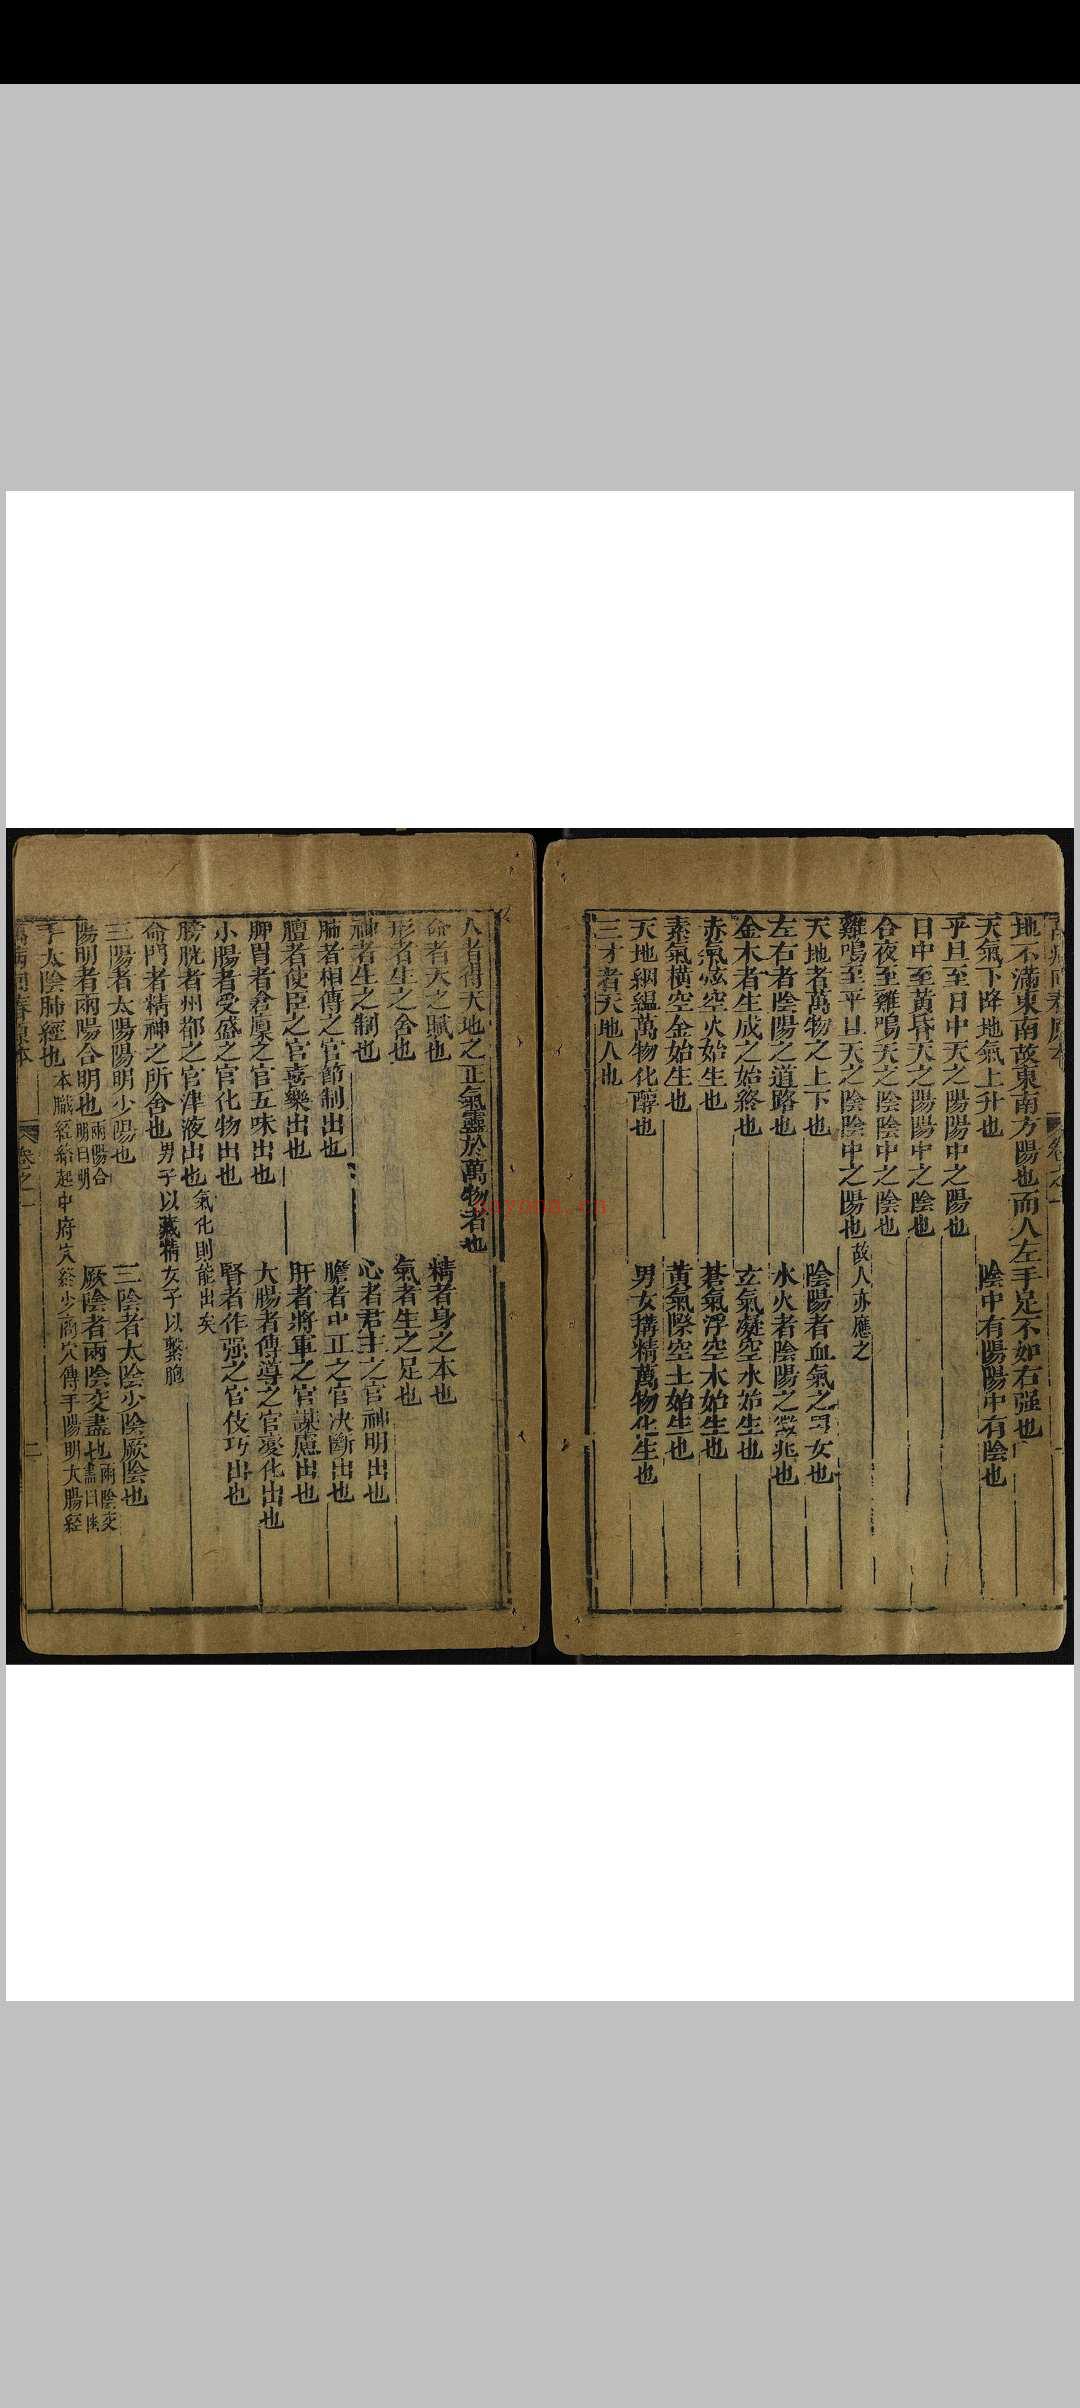 地不滿東南故東南方陽也而人左手足不如右强也
天氣下降地氣上升也 陰中有陽陽中有陰也
平旦至日中天之陽陽中之陽也
日中至黃昏天之陽陽中之陰也
合夜至雞鳴天之陰陰中之陰也
雞鳴至平旦天之陰陰中之陽也故人亦應之
天地者萬物之上下也 陰陽者血氣之男女也
左右者陰陽之道路也 水火者陰陽之徵兆也
金木者生成之始終也 玄氣凝空水始生也
赤氣炫空火始生也 蒼氣浮空木始生也
素氣橫空金始生也 黃氣際空土始生也
天地絪縕萬物化醇也 男女搆精萬物化生也
三才者天地人也
人者得天地之正氣靈於萬物者也
命者天之賦也 精者身之本也
形者生之舍也 氣者生之足也
神者生之制也 心者君主之官神明出也
肺者相傳之官節制出也 膽者中正之官決斷出也
膻者使臣之官喜樂出也 肝者將軍之官謀慮出也
脾胃者倉廩之官五味出也 大腸者傳導之官變化出也
小腸者受盛之官化物出也 腎者作强之官伎巧出也
膀胱者州都之官津液出也氣化則能出矣
命門者精神之所舍也男子以藏精女子以繫胞
三陽者太陽陽明少陽也 三陰者太陰少陰厥陰也
陽明者兩陽合明也兩陽合明曰明 厥陰者兩陰交盡也兩陰交盡曰幽
手太陰肺經也本臟經絡起中府穴終少商穴傳手陽明大腸經
卷之一
二